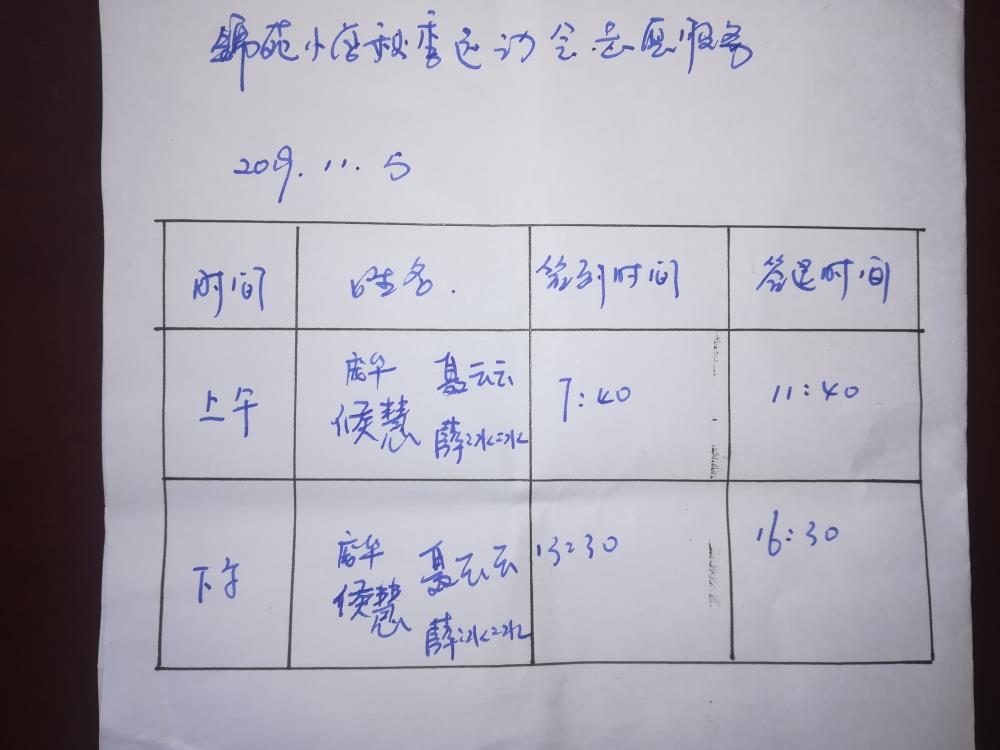 锦苑小学秋季运动会志愿服务
2019.11.5
时间 姓名. 签到时间 签退时间
上午 庞华 聂云云 7:40 11:40
侯慧 薛冰冰
下午 庞华 聂云云 13:30 16:30
侯慧 薛冰冰